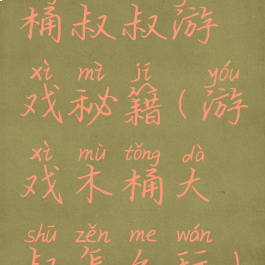 桶叔叔游
xì mì jí yóu
戏秘籍(游
xì mù tǒng dà
戏木桶大
shū zěn me wán
叔怎么玩)